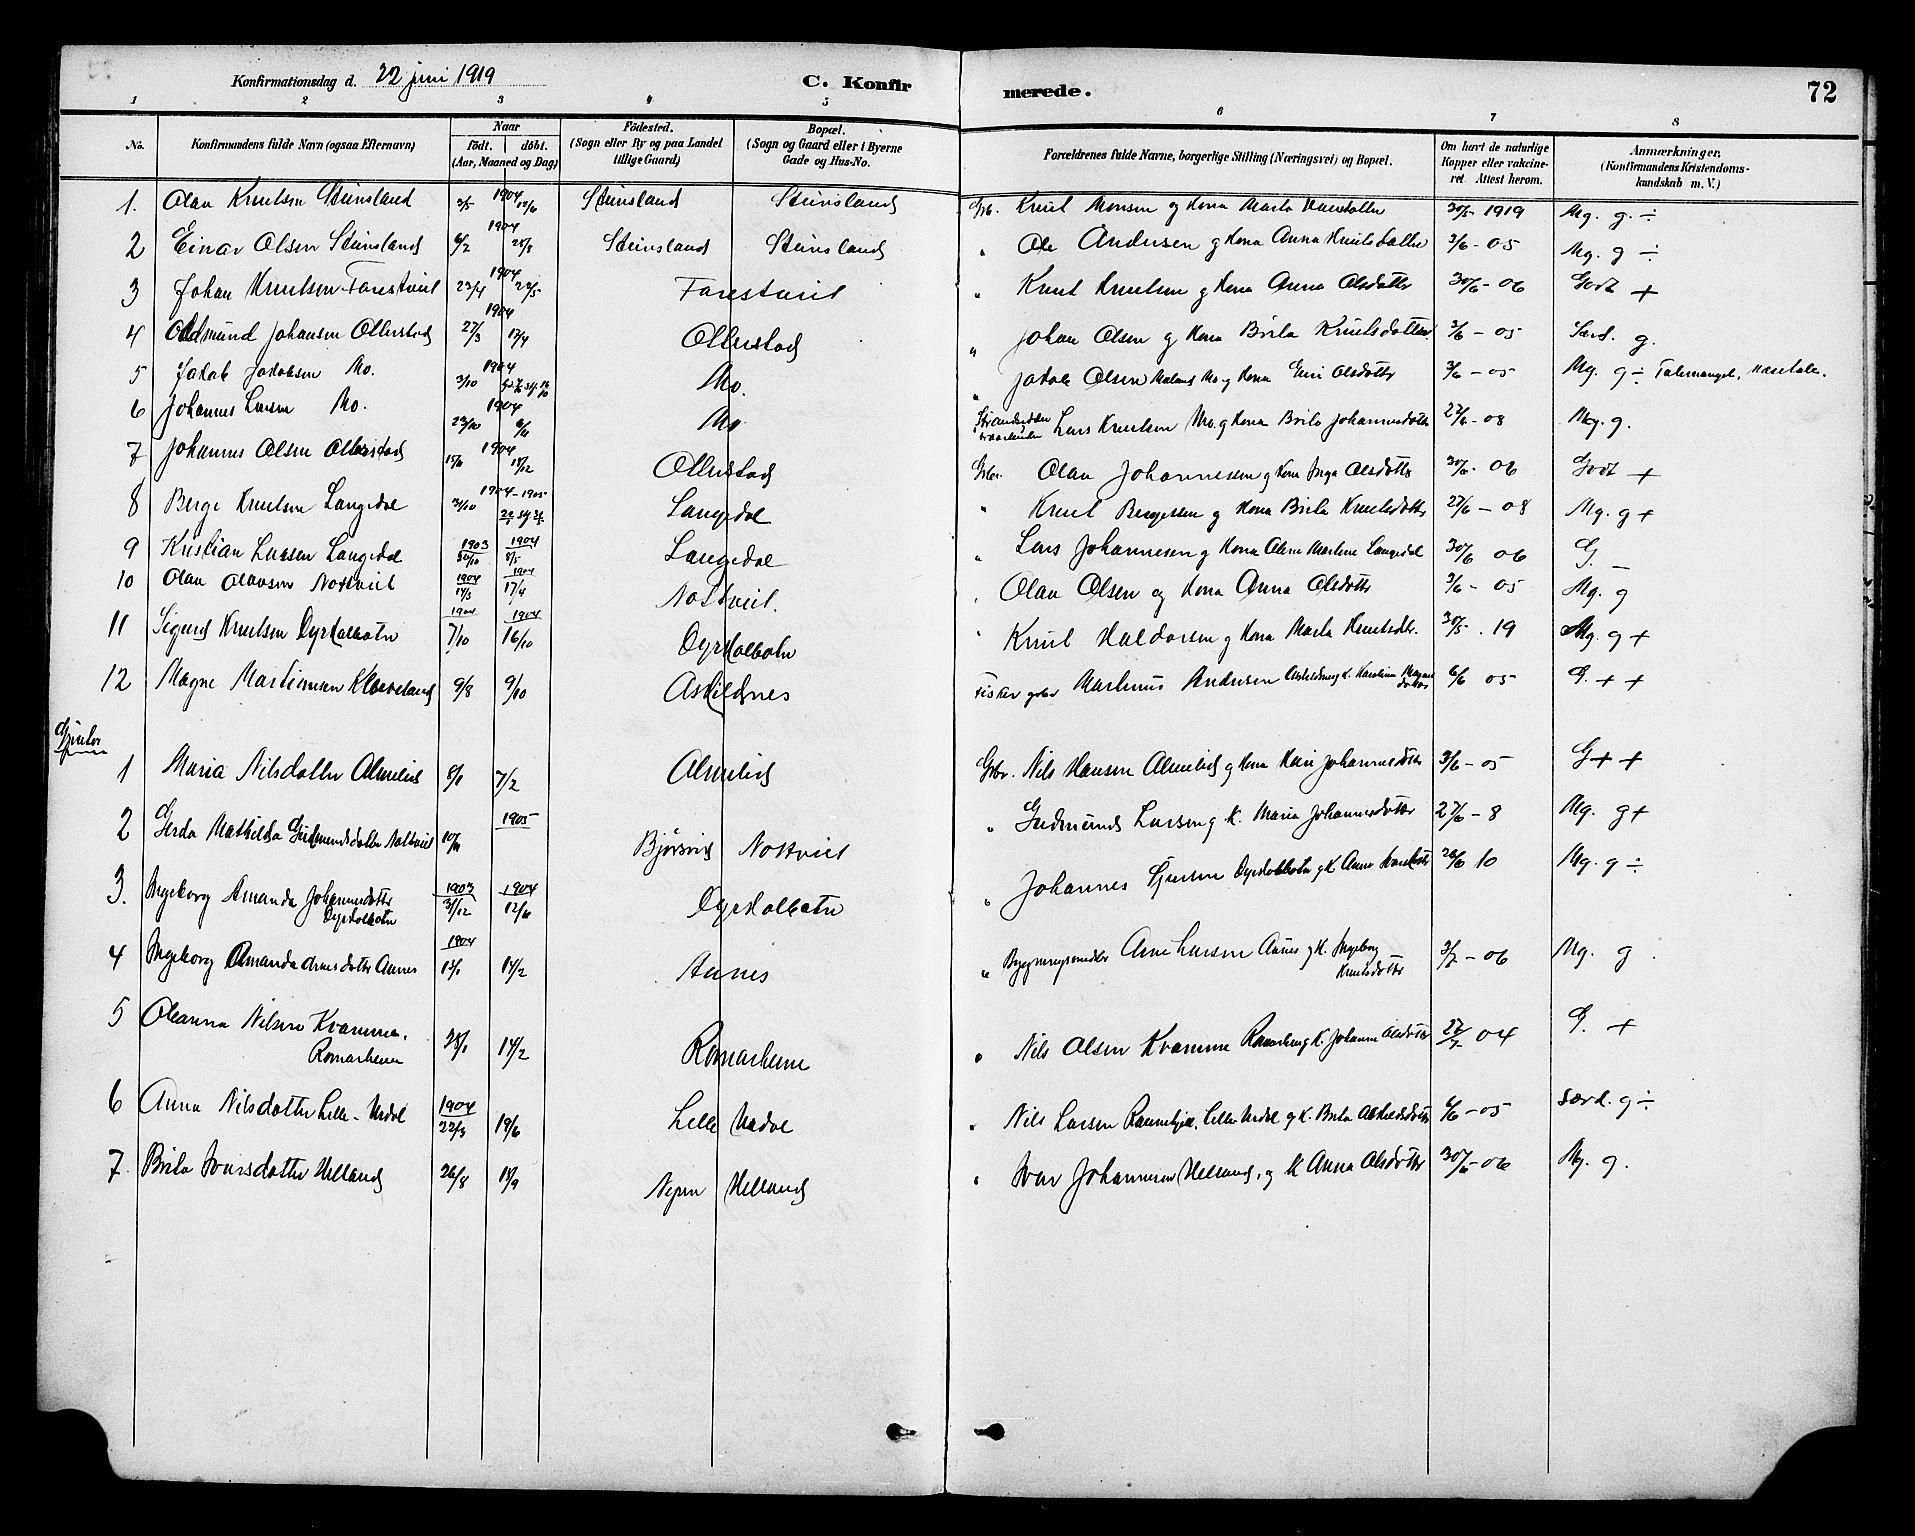 Konfirmationsdag d. 22 juni 1919 C. Konfirmerede. 72
1 2 3 4 5 6 7 8
No. Konfirmandens fulde Navn (ogsaa Efternavn) Naar födt. döbt. (Aar, Maaned og Dag) Födested. (Sogn eller By og paa Landet tillige Gaard) Bopæl. (Sogn og Gaard eller i Byerne Gade og Hus-No. Forældrenes fulde Navne, borgerlige Stilling (Næringsvei) og Bopæl. Om havt de naturlige Kopper eller vakcineret Attest herom. Anmærkninger. (Konfirmandens Kristendomskundskab m. V.)
1. Olav Knutsen Steinsland 3/5 1904 12/6 Steinsland Steinsland Grb. Knut Monsen og Kona Marta 30/5 - 1919 Mg. g. ÷
2 Einar Olsen Steinsland 6/2 1904 28/3 Steinsland Steinsland " Ole Andersen g Kona Anna Knutsdatter 3/6 - 05 Mg. g ÷
3 Johan Knutsen Farestveit 23/4 1904 22/5 Farestveit " Knut Knutsen g Kona Anna Olsdotter 30/6 - 06 Godt +
4 Johansen Ollerstad 27/3 1904 17/4 Ollerstad " Johan Olsen g Kona Brita Knutsdotter 3/6 - 05 Særd. g.
5 Jakob Jakobsen Mo. 3/10 1904 Mo. " Jakob Olsen Mo. g Kona Olsdotter 3/6 - 05 Mg. g ÷ Talemangel,
6 Johannes Larsen Mo. 23/10 1904 Mo Lars Knutsen Mo. g Kona Brita Johannesdotter 27/6 - 08 Mg. g.
7 Johannes Olsen Ollerstad 1904 18/12 Ollerstad Grbr. Olav Johannesen g Kona Inga Olsdotter 30/6 - 06 Godt +
8 Berge Knutsen Langedal 31/10 1904 - 1905 Langedal " Knut Bergesen g Kona Brita Knutsdotter 27/6 - 08 Mg. g +
9 Kristian Larsen Langedal 1903 30/10 1904 8/5 Langedal " Lars Johannesen g Kona Marlene Langedal 30/6 06 G. –
10 Olav Olavsen Notveit 1904 14/3 1904 17/4 Notveit. " Olav Olsen og Kona Anna Olsdotter 3/6 - 05 Mg. g
11 Sigurd Knutsen Dyrkolbotn 1904 7/10 1904 16/10 Dyrkolbotn " Knut Haldorsen g Kona Marta Knutsdtr. 30/5 . 19 Mg. g +
12 Magne Martinusen Kleiveland 9/8 9/10 Askildnes Fisker grbr Martinus Andersen 6/6 05 G. + +
Gjenter
1 Maria Nilsdatter Almelid 5/1 7/2 Almelid Grbr. Nils Hansen Almelid g Kona Kari Johannesdotter 3/6 - 05 G + +
2 Gerda Mathilda Gudmundsdatter Notveit 1905 Bjørsvig Notveit " Gudmund Larsen g. K. Maria Johannesdotter 27/6 - 8 Mg. g +
3. Ingeborg Amanda Johannesdotter
Dyrkolbotn 1903 31/12 1904 12/6 Dyrkolbotn " Johannes Dyrkolbotn g K Anna 10 Mg. g ÷
4 Ingeborg Amanda Arnesdotter Aanes 1904 13/1 14/2 Aanes " Arne Larsen Aanes g K. Ingeborg
Knutsdotter 3/7 - 06 Mg. g.
5 Oleanna Nilsen Kvamme,
Romarheim 28/1 14/2 Romarheim " Nils Olsen Kvamme g K. Johanna Olsdotter 22/7 04 G. +
6 Anna Nilsdotter Lille-Urdal 1904 22/3 19/6 Lille Urdal " Nils Larsen Lille Urdal g K. Brita Askildsdotter 6/6 - 05 særd. g ÷
7. Brita Ivarsdotter Helland 26/8 18/9 Helland " Ivar Johannesen Helland, g K Anna Olsdotter 30/6 - 06 Mg. g.